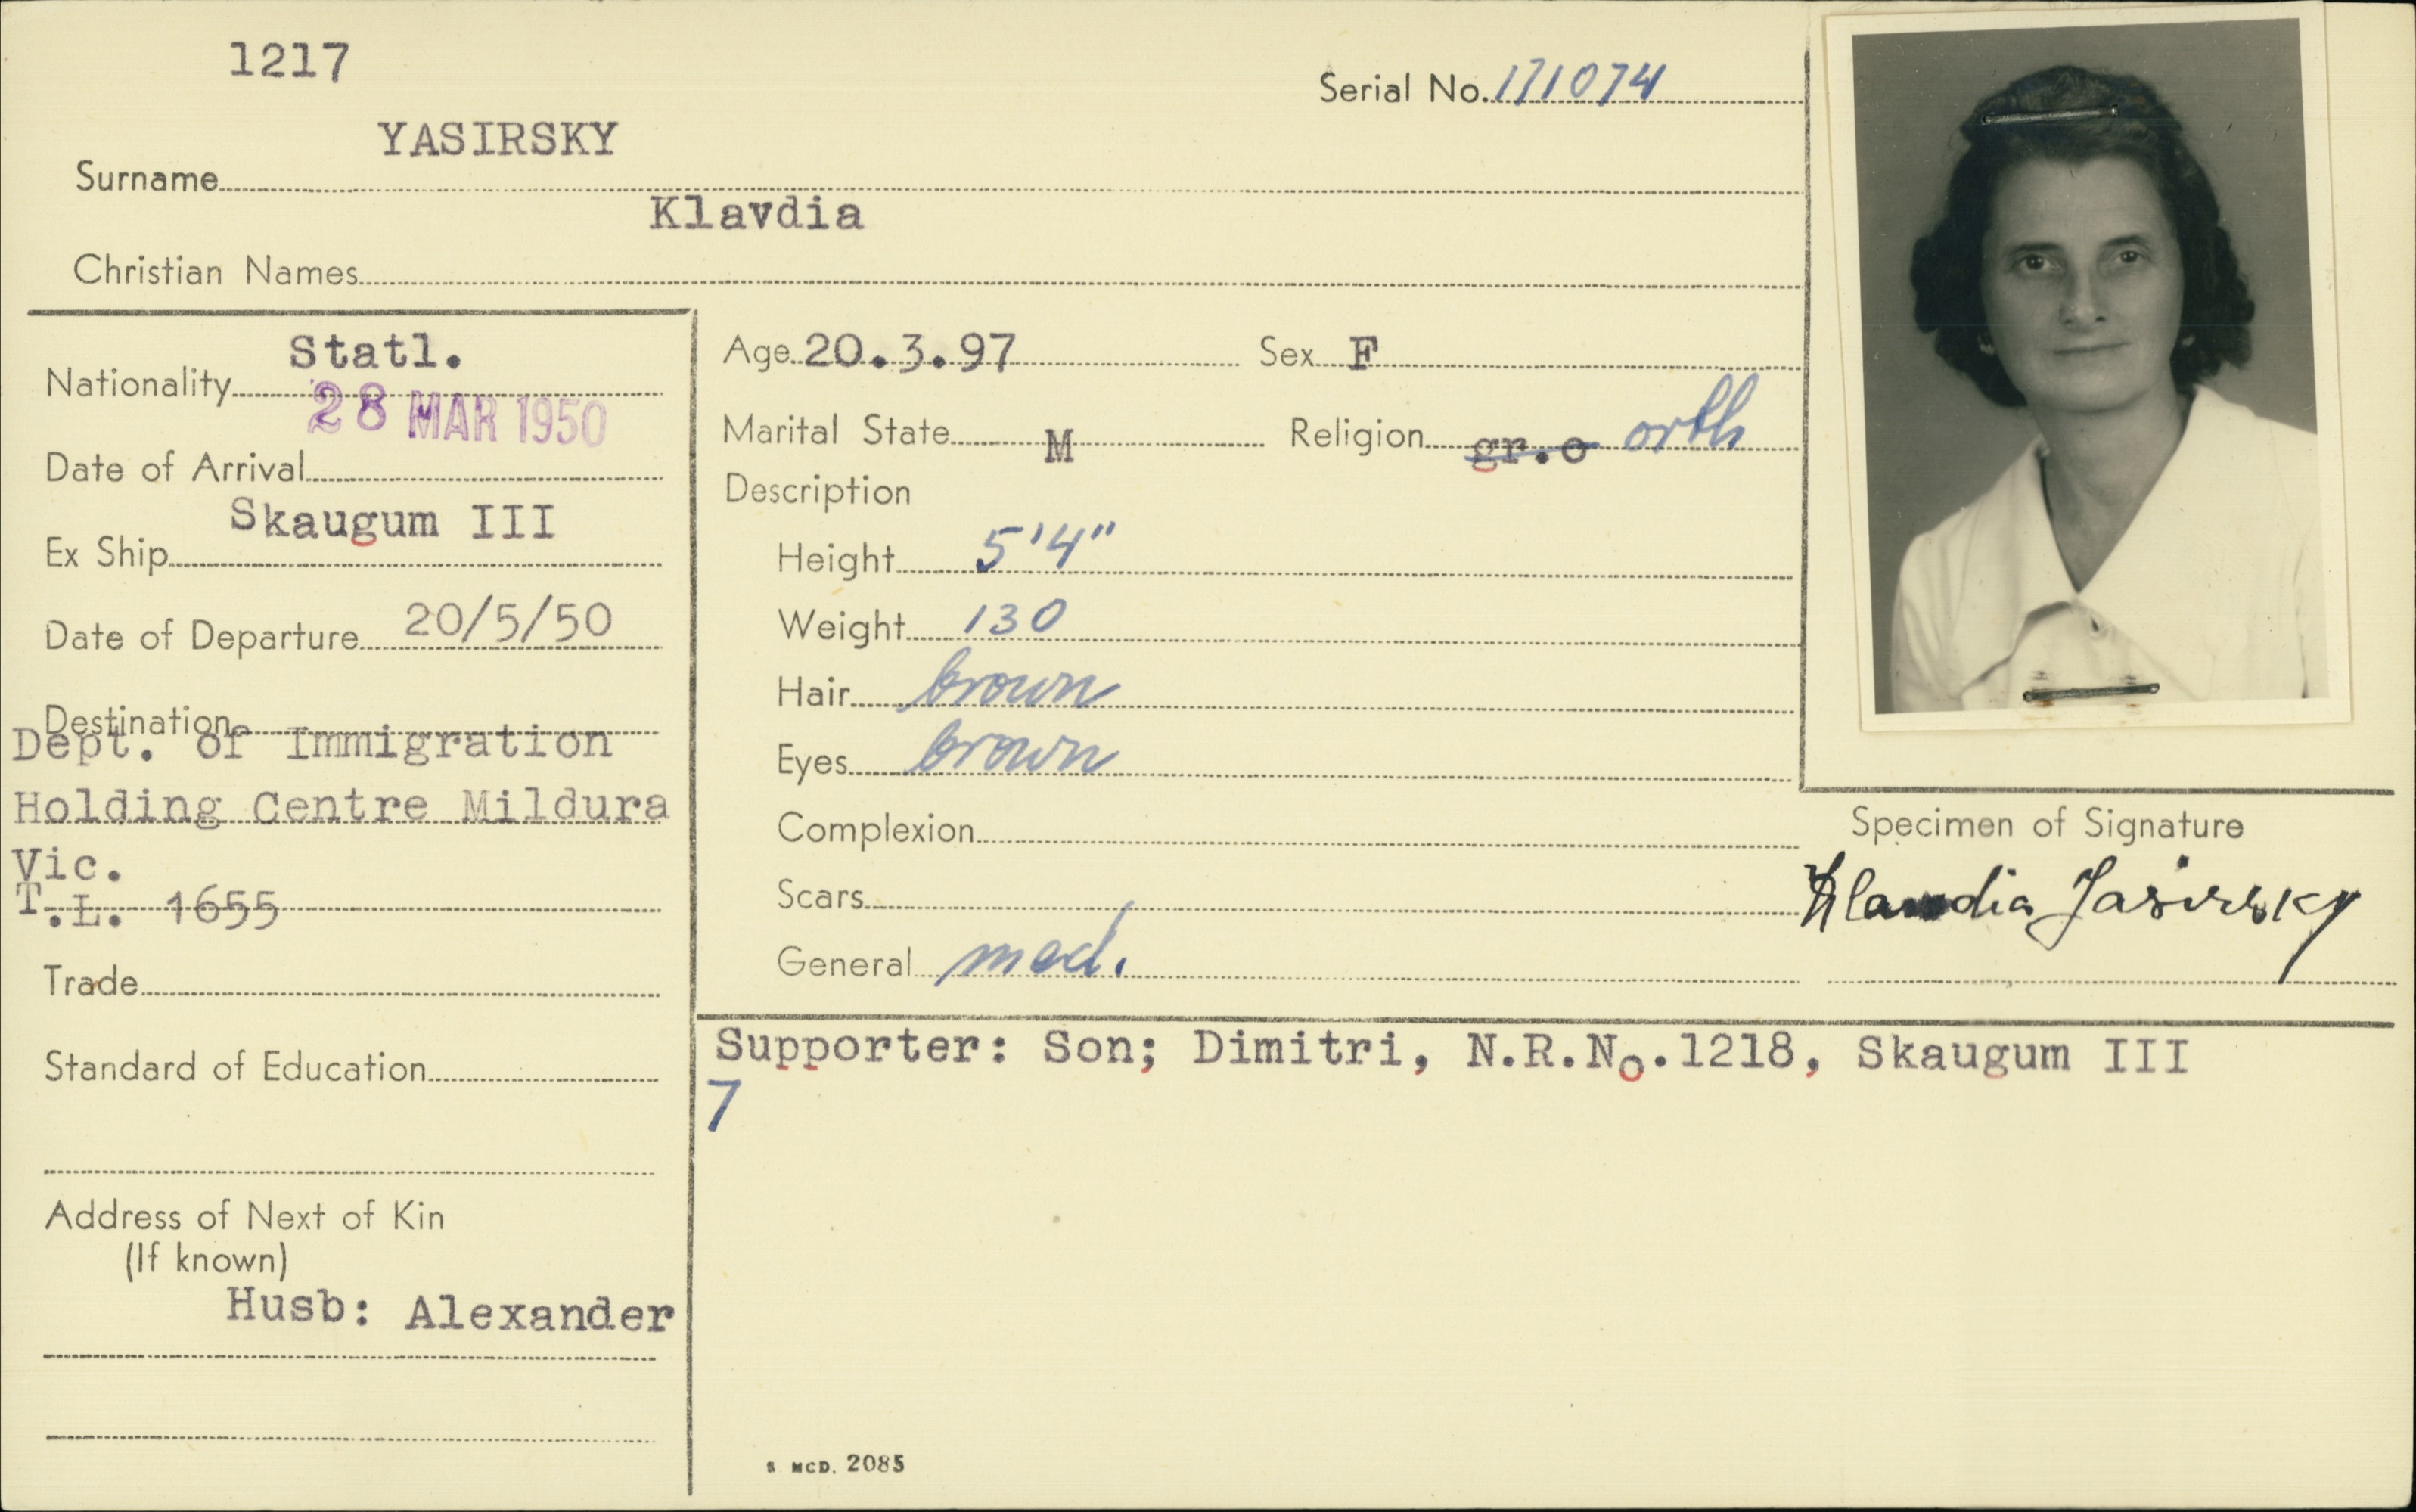 1217
Serial No. 171074
YASIRSKY
Surname
Klavdia
Christian Names
Statl.
Nationality
28 MAR 1950
Date of Arrival
Skaugum III
Ex Ship
Date of Departure 20/5/50
Destination
Dept. of Immigration
Holding Centre Mildura
Vic.
T.L. 1655
Trade
Standard of Education
Address of Next of Kin
(If known)
Husb: Alexander
Age 20.3.97 Sex F
Marital State M Religion gr.o orth
Description
Height 5'4"
Weight 130
Hair brown
Eyes brown
Complexion
Scars
General med.
Specimen of Signature
Klavdia Jasirsky
Supporter: Son; Dimitri, N.R.No.1218, Skaugum III
7
S MCD. 2085